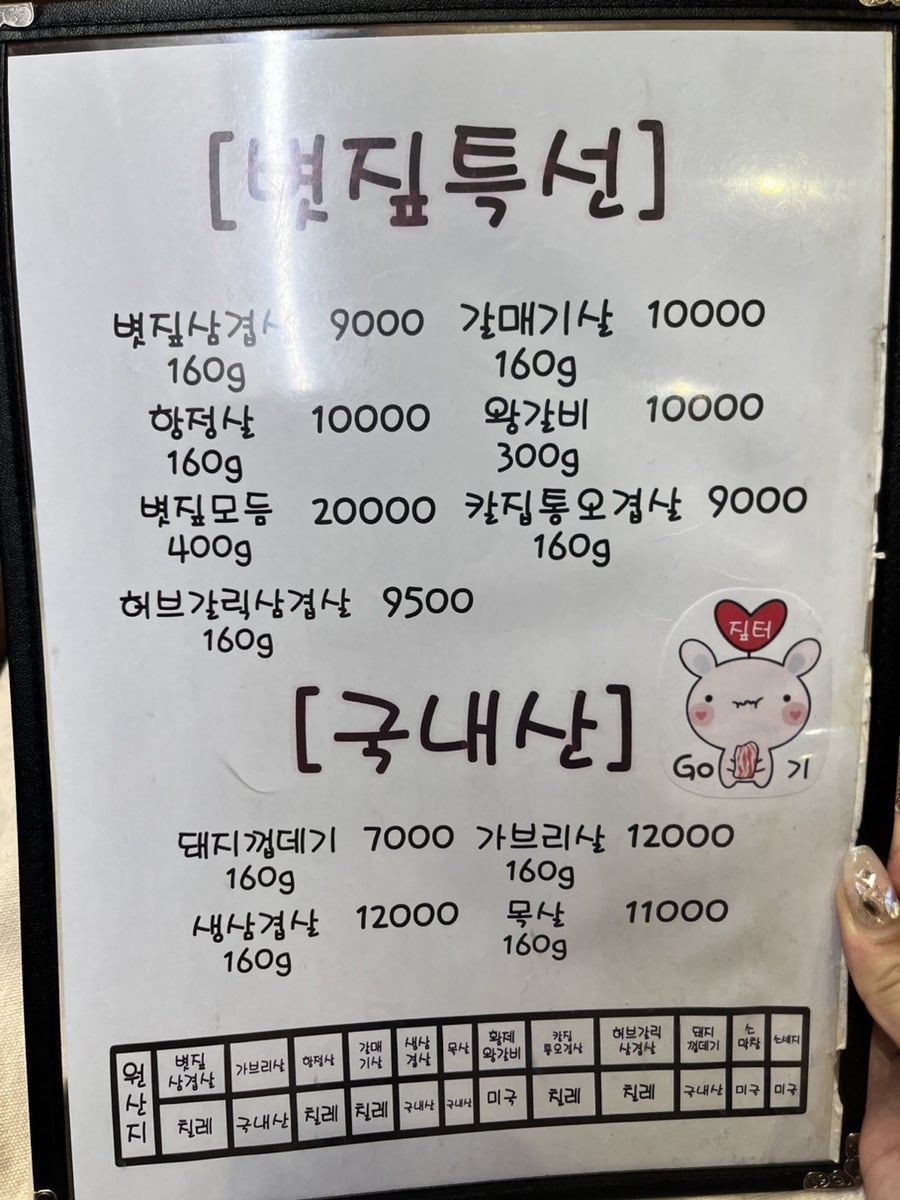 [볏짚특선]
볏짚삼겹살 9000 갈매기살 10000
160g 160g
항정살 10000 왕갈비 10000
160g 300g
볏짚모듬 20000 칼집통오겹살 9000
400g 160g
허브갈릭삼겹살 9500
160g
짚터
Go 기
[국내산]
돼지껍데기 7000 가브리살 12000
160g 160g
생삼겹살 12000 목살 11000
160g 160g
원산지 볏짚삼겹살 가브리살 항정살 갈매기살 생삼겹살 목살 황제왕갈비 칼집통오겹살 허브갈릭삼겹살 돼지껍데기 소막창 소세지
칠레 국내산 칠레 칠레 국내산 국내산 미국 칠레 칠레 국내산 미국 미국